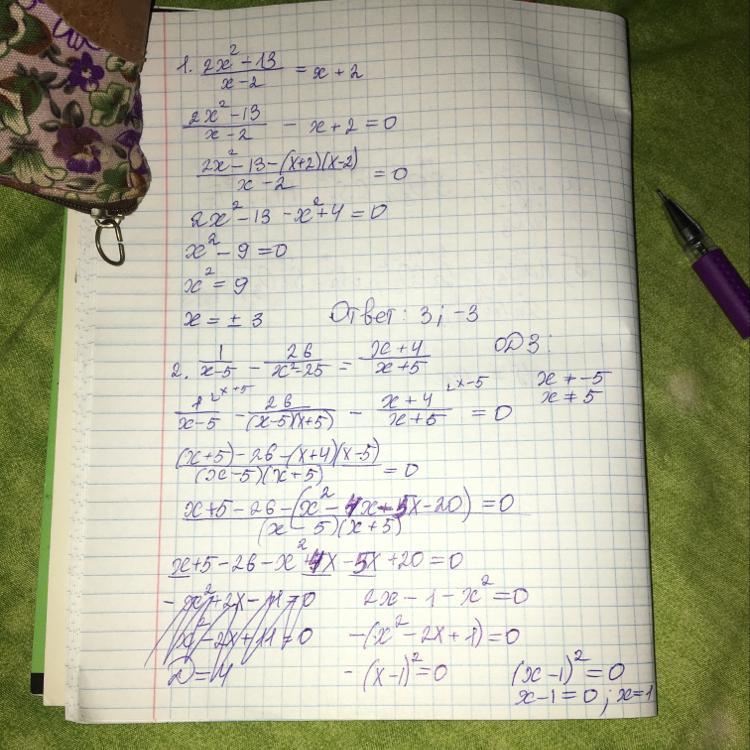 1. (2x² - 13)/(x - 2) = x + 2
(2x² - 13)/(x - 2) - x + 2 = 0
(2x² - 13 - (x+2)(x-2))/(x - 2) = 0
2x² - 13 - x² + 4 = 0
x² - 9 = 0
x² = 9
x = ± 3 Ответ: 3; -3
2. 1/(x-5) - 26/(x²-25) = (x+4)/(x+5) ОДЗ:
x ≠ -5
x ≠ 5
1/(x-5) ^(x+5) - 26/((x-5)(x+5)) - (x+4)/(x+5) ^(x-5) = 0
((x+5) - 26 - (x+4)(x-5))/((x-5)(x+5)) = 0
(x+5 - 26 - (x² - 4x + 5x - 20))/((x-5)(x+5)) = 0
x+5 - 26 - x² + 4x - 5x + 20 = 0
- x² + 2x - 11 = 0 2x - 1 - x² = 0
x² - 2x + 11 = 0 -(x² - 2x + 1) = 0
-(x-1)² = 0 (x-1)² = 0
x - 1 = 0; x = 1